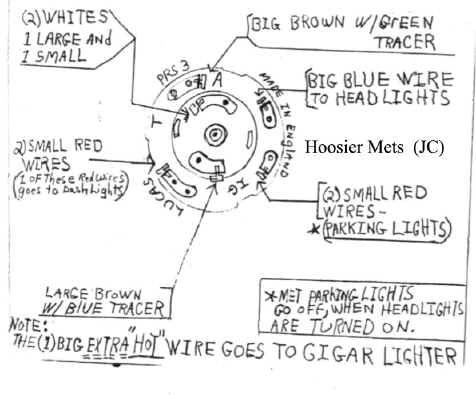 (2) WHITES
1 LARGE AND
1 SMALL
BIG BROWN W/GREEN
TRACER
PRS3
A
MADE IN ENGLAND
BIG BLUE WIRE
TO HEADLIGHTS
T
Hoosier Mets (JC)
2) SMALL RED
WIRES
(1 OF THESE Red Wires
goes to Dash Lights)
LUCAS
IG
(2) SMALL RED
WIRES-
*(PARKING LIGHTS)
LARGE BROWN
W/ BLUE TRACER
*MET PARKING LIGHTS
GO OFF, WHEN HEADLIGHTS
ARE TURNED ON.
NOTE:
THE (1) BIG EXTRA "HOT" WIRE GOES TO GIGAR LIGHTER